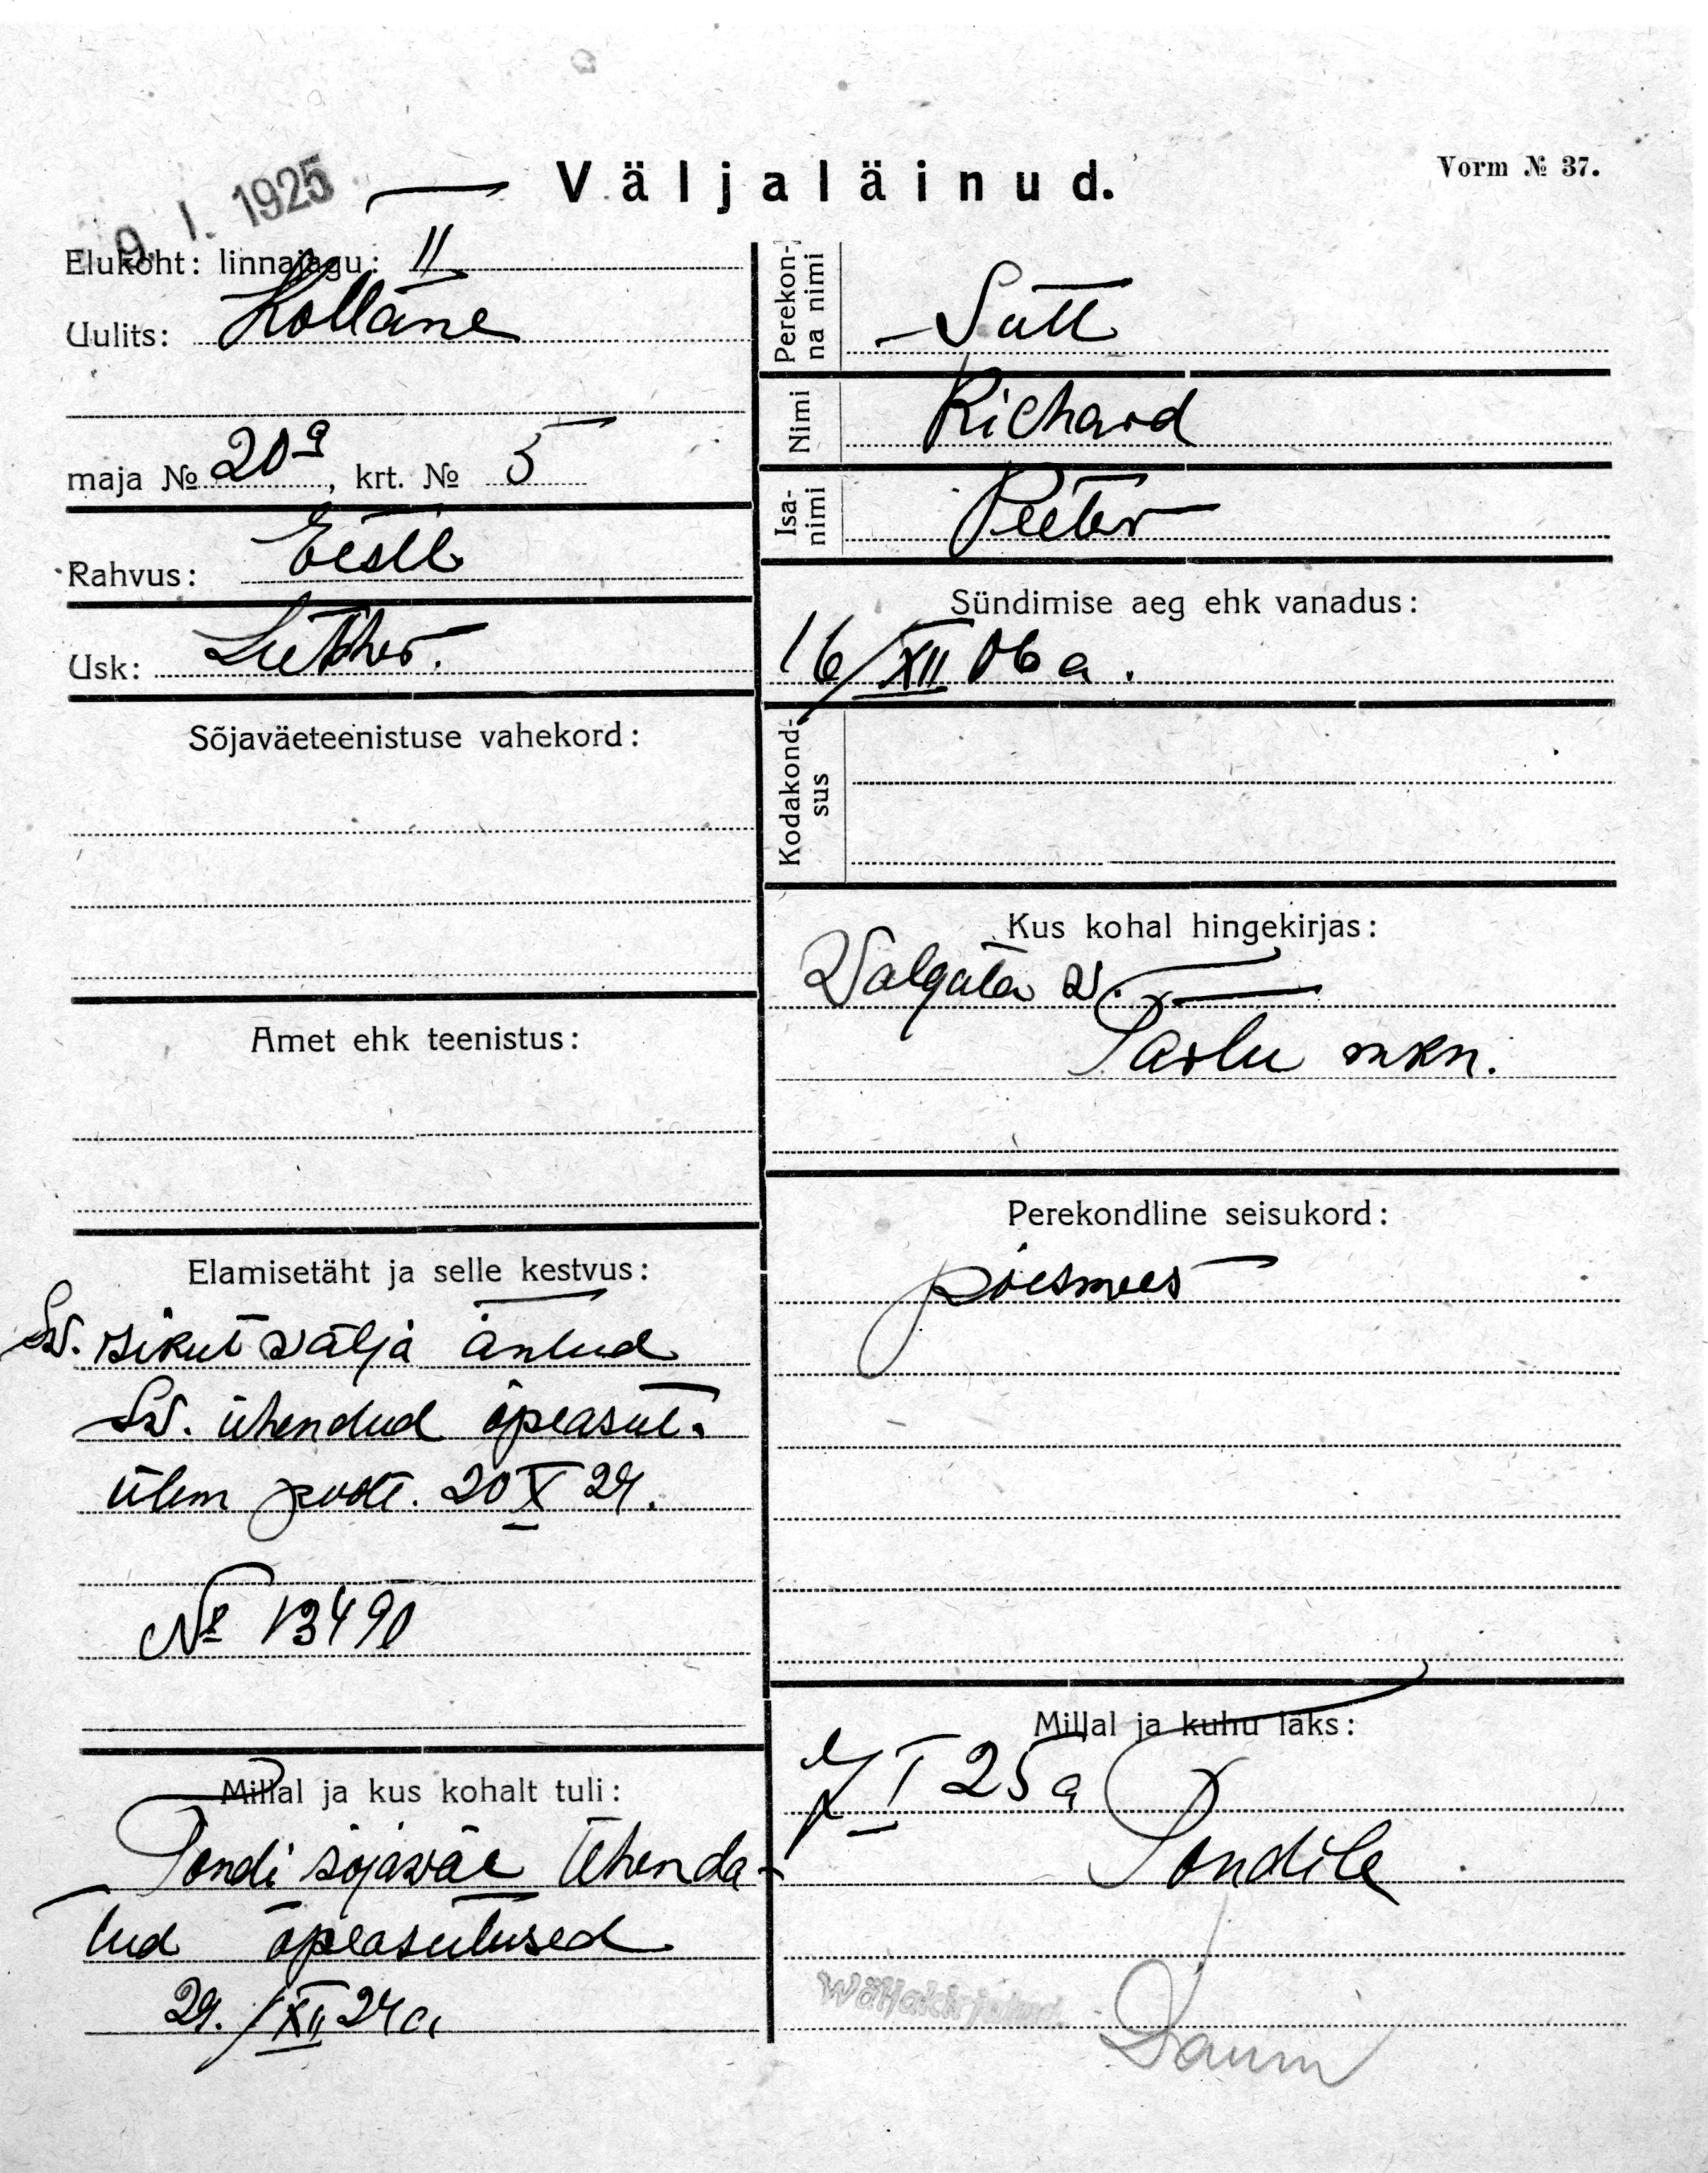 Vorm № 37.
Väljaläinud.
9. I. 1925
Elukoht: linnajagu: II
Uulits: Kollane
maja № 20a, krt. № 5
Rahvus: Eestl
Usk: Luther.
Sõjaväeteenistuse vahekord:
Amet ehk teenistus:
Elamisetäht ja selle kestvus:
Sv. isikut välja antud
Sv. ühendud õpeasut.
ülem poolt. 20 X 24.
№ 13490
Millal ja kus kohalt tuli:
Tondi sõjaväe Ühenda-
tud õpeasutused
24. / XII 24 a
Perekon-
na nimi
Sutt
Nimi
Richard
Isa-
nimi
Peeter
Sündimise aeg ehk vanadus:
16/XII 06 a.
Kodakond-
sus
Kus kohal hingekirjas:
Valguta v.
Tartu mkn.
Perekondline seisukord:
poismees
Millal ja kuhu läks:
7 I 25 a
Tondile
Wäljakirjutud.